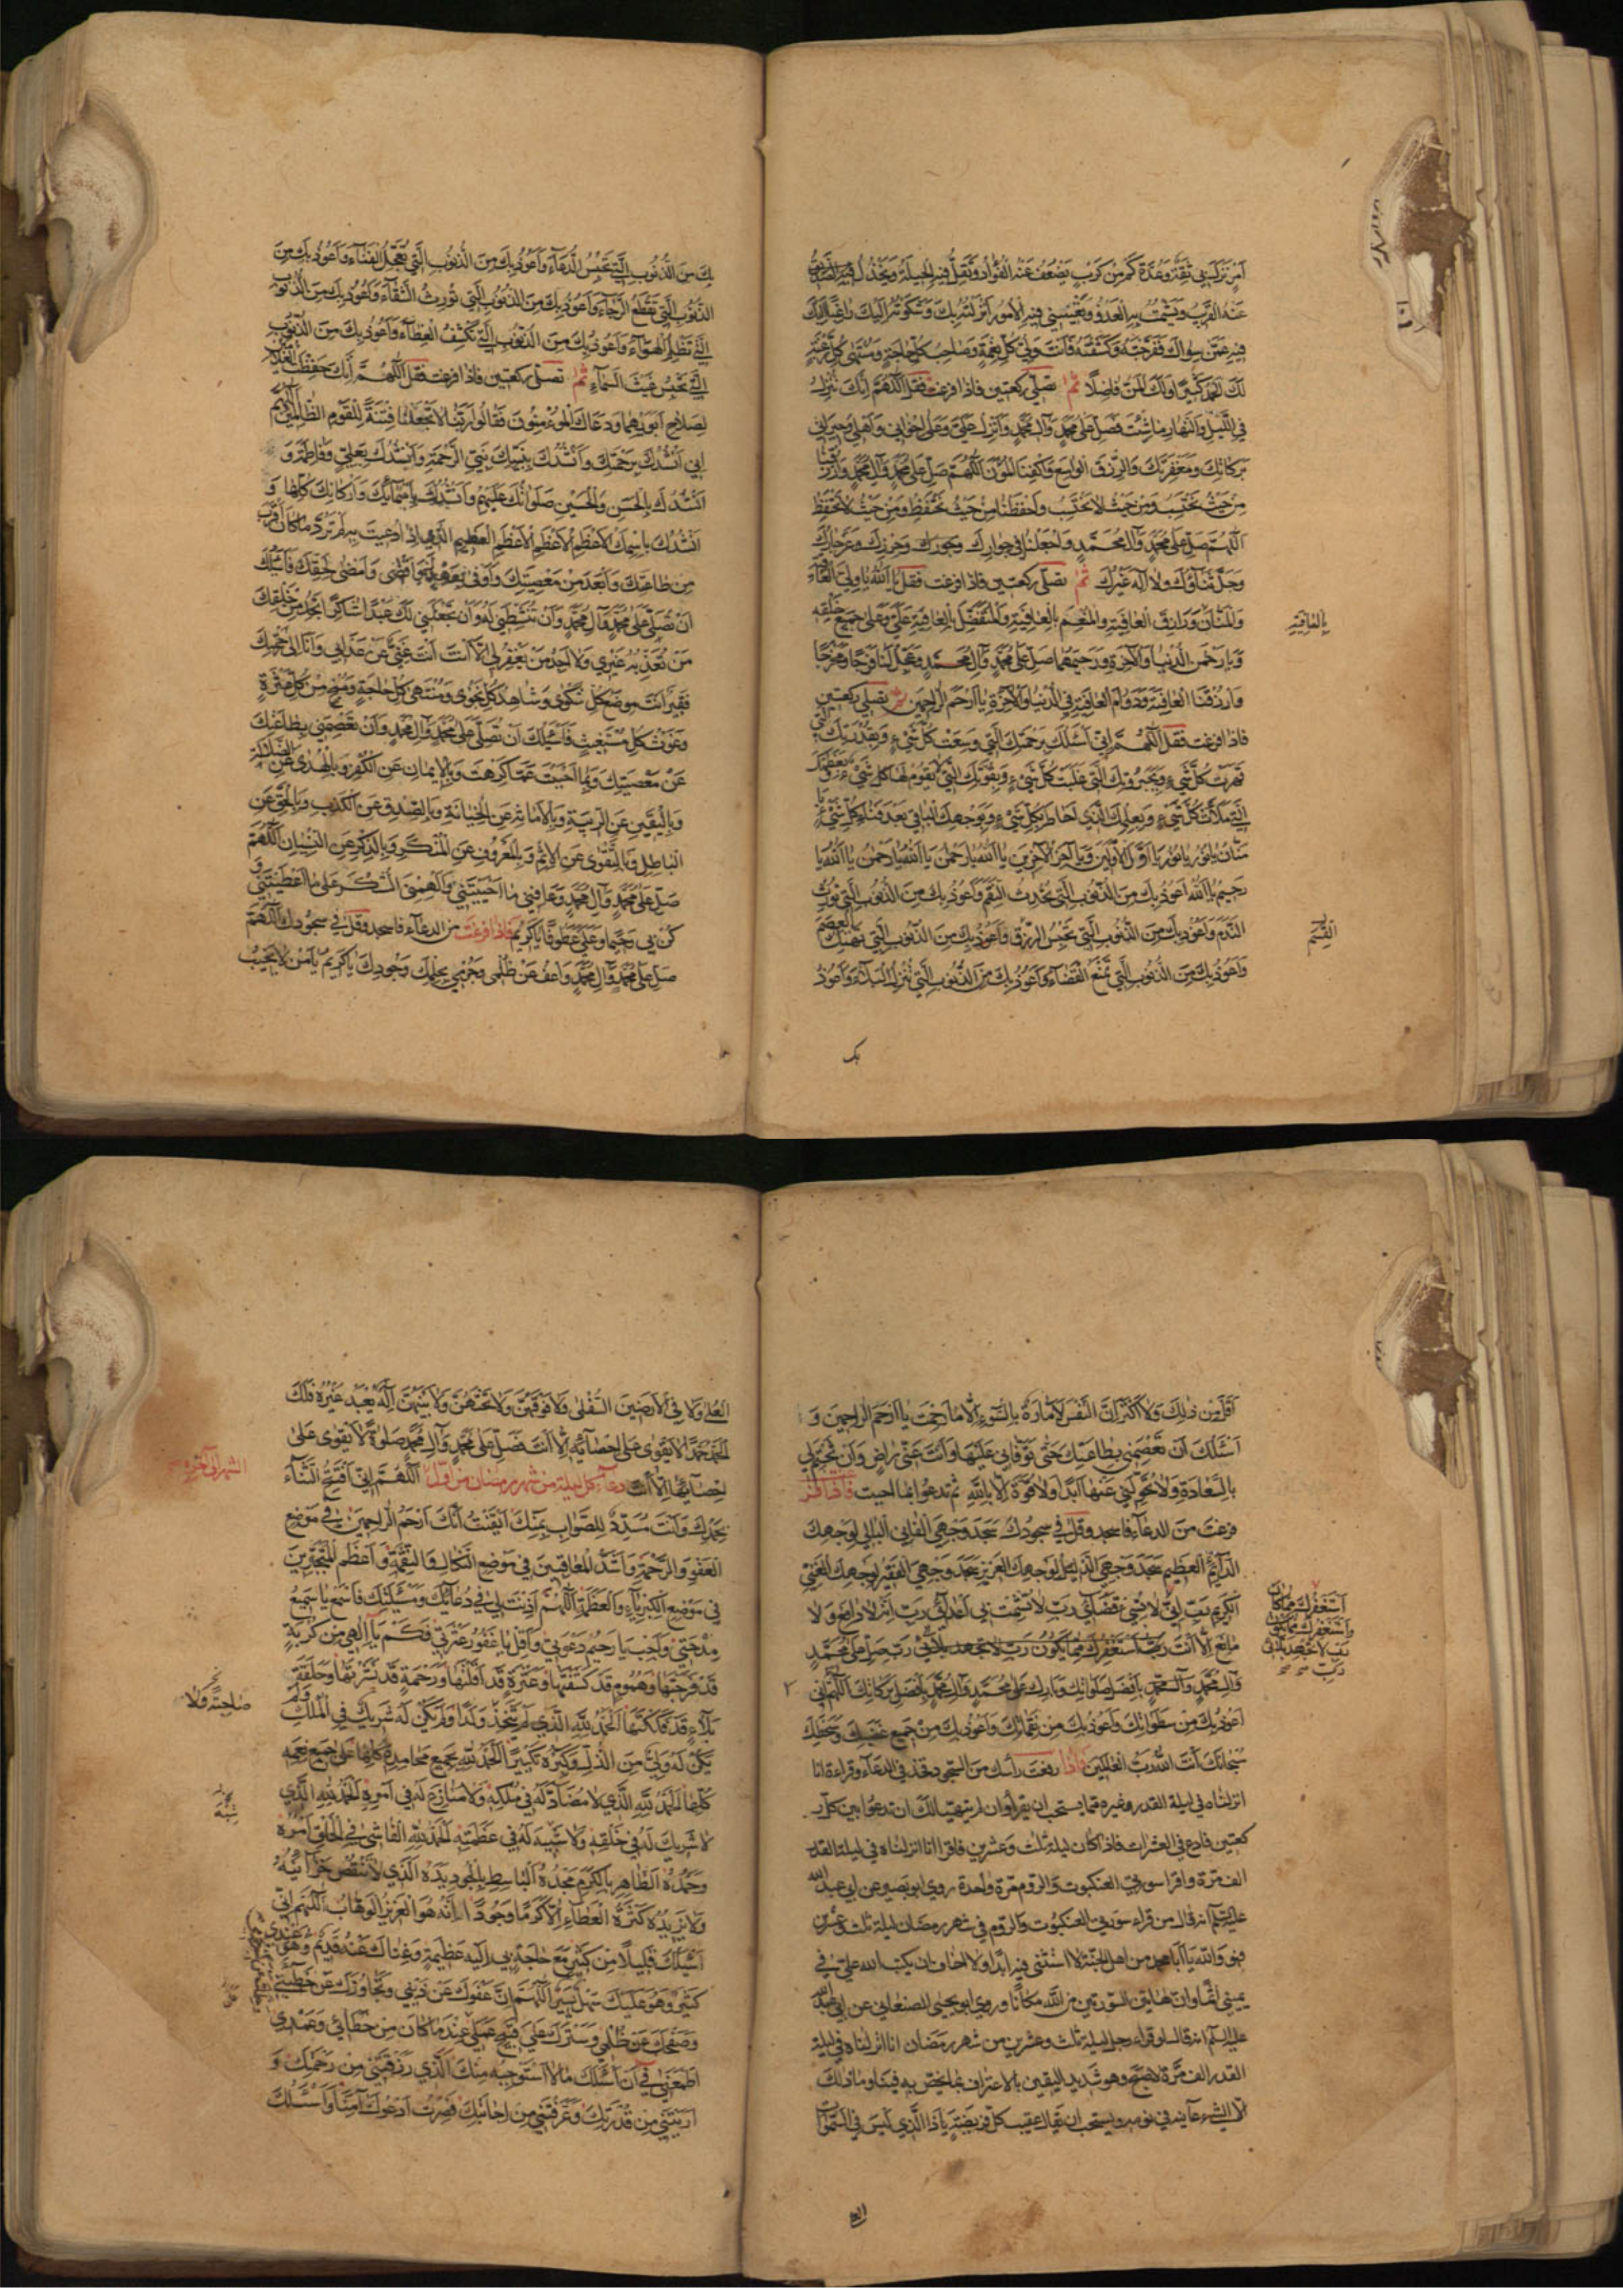 أمر نزل بي ثقة وعدة كم من كرب يضعف عنه الفؤاد وتقل فيه الحيلة ويخذل فيه
عنه القريب ويشمت به العدو وتعييني فيه الأمور أنزلته بك وشكوته إليك راغبا إليك
فيه عمن سواك ففرجته وكشفته فأنت ولي كل نعمة وصاحب كل حاجة ومنتهى كل رغبة
لك الحمد كثيرا ولك المن فاضلا ثم تصلي ركعتين فاذا فرغت فقل اللهم إنك تنزل
في الليل والنهار ما شئت فصل على محمد وآل محمد وأنزل علي وعلى إخواني وأهلي وجيراني
بركاتك ومغفرتك والرزق الواسع واكفنا المؤن اللهم صل على محمد وآل محمد وارزقنا
من حيث نحتسب ومن حيث لا نحتسب واحفظنا من حيث نحتفظ ومن حيث لا نحتفظ
اللهم صل على محمد وآل محمد واجعلنا في جوارك وحرزك وعز جارك
وجل ثناؤك ولا إله غيرك ثم تصلي ركعتين فاذا فرغت فقل يا الله يا ولي العافية
والمنان ورازق العافية والمنعم بالعافية والمتفضل بالعافية علي وعلى جميع خلقه
بالعافية
ويا رحمن الدنيا والآخرة ورحيمهما صل على محمد وآل محمد وعجل لنا فرجا ومخرجا
وارزقنا العافية ودوام العافية في الدنيا والآخرة يا أرحم الراحمين ثم تصلي ركعتين
فاذا فرغت فقل اللهم إني أسئلك برحمتك التي وسعت كل شيء وبقدرتك التي
قهرت كل شيء وبجبروتك التي غلبت كل شيء وبقوتك التي لا يقوم لها كل شيء وبعظمتك
التي ملأت كل شيء وبعلمك الذي أحاط بكل شيء وبوجهك الباقي بعد فناء كل شيء يا
منان يا نور يا نور يا أول الأولين ويا آخر الآخرين يا الله يا رحمن يا الله يا رحمن يا الله يا
رحيم يا الله أعوذ بك من الذنوب التي تحدث النقم وأعوذ بك من الذنوب التي تورث
الندم وأعوذ بك من الذنوب التي تحبس الرزق وأعوذ بك من الذنوب التي تهتك العصم
القسم
وأعوذ بك من الذنوب التي تمنع القضاء وأعوذ بك من الذنوب التي تنزل البلاء وأعوذ
بك
بك من الذنوب التي تحبس الدعاء وأعوذ بك من الذنوب التي تعجل الفناء وأعوذ بك من
الذنوب التي تقطع الرجاء وأعوذ بك من الذنوب التي تورث الشقاء وأعوذ بك من الذنوب
التي تظلم الهواء وأعوذ بك من الذنوب التي تكشف الغطاء وأعوذ بك من الذنوب
التي تحبس غيث السماء ثم تصلي ركعتين فاذا فرغت فقل اللهم إنك حفظت الغلامين
لصلاح أبويهما ودعاك المؤمنون فقالوا ربنا لا تجعلنا فتنة للقوم الظالمين اللهم
إني أنشدك برحمتك وأنشدك بنبيك نبي الرحمة وأنشدك بعلي وفاطمة و
أنشدك بالحسن والحسين صلواتك عليهم وأنشدك بأسمائك وأركانك كلها و
أنشدك باسمك الأعظم الأعظم الأعظم العظيم الذي إذا دعيت به لم ترد ما كان أقرب
من طاعتك وأبعد من معصيتك وأوفى بعهدك وأقضى لحقك فأسئلك
أن تصلي على محمد وآل محمد وأن تنشطني له وأن تجعلني لك عبدا شاكرا تجد من خلقك
من تعذبه غيري ولا أجد من يغفر لي إلا أنت أنت غني عن عذابي وأنا إلى رحمتك
فقير أنت موضع كل شكوى وشاهد كل نجوى ومنتهى كل حاجة ومنج من كل عثرة
وغوث كل مستغيث فأسئلك أن تصلي على محمد وآل محمد وأن تعصمني بطاعتك
عن معصيتك وبما أحببت عما كرهت وبالإيمان عن الكفر وبالهدى عن الضلالة
وباليقين عن الريبة وبالأمانة عن الخيانة وبالصدق عن الكذب وبالحق عن
الباطل وبالتقوى عن الإثم وبالمعروف عن المنكر وبالذكر عن النسيان اللهم
صل على محمد وآل محمد وعافني ما أحييتني وألهمني الشكر على ما أعطيتني و
كن بي رحيما وعلي عطوفا يا كريم فاذا فرغت من الدعاء فاسجد وقل في سجودك اللهم
صل على محمد وآل محمد واعف عن ظلمي وجرمي بحلمك وجودك يا كريم يا من لا يخيب
أقل من ذلك ولا أكثر إن النفس لأمارة بالسوء إلا ما رحمت يا أرحم الراحمين و
أسئلك أن تعصمني بطاعتك حتى توفاني عليها وأنت عني راض وأن تختم لي
بالسعادة ولا تحولني عنها أبدا ولا قوة إلا بالله ثم تدعو بما احببت فاذا
فرغت من الدعاء فاسجد وقل في سجودك سجد وجهي الفاني البالي لوجهك
الدائم العظيم سجد وجهي الذليل لوجهك العزيز سجد وجهي الفقير لوجهك الغني
الكريم رب لا تشمت بي أعدائي رب
أستغفرك مما كان
وأستغفرك مما يكون
رب لا تجهد بلائي
رب
مانع إلا أنت رب أستغفرك مما يكون رب لا تجهد بلائي رب صل على محمد
وآل محمد بأفضل صلواتك وبارك على محمد وآل محمد بأفضل بركاتك اللهم إني
أعوذ بك من سطواتك وأعوذ بك من نقماتك وأعوذ بك من جميع غضبك وسخطك
سبحانك أنت الله رب العالمين فاذا رفعت رأسك من السجود فخذ في الدعاء وقراءة انا
انزلناه في ليلة القدر وغيره مما يستحب أن يقرأ وان لم يتهيأ لك ان تدعو بين كل ر
كعتين فادع في العشرات فاذا كان ليلة ثلث وعشرين فاقرأ انا انزلناه في ليلة القدر
الف مرة واقرأ سورتي العنكبوت والروم مرة واحدة روى ابو بصير عن ابي عبد الله
عليه السلم انه قال من قراء سورتي العنكبوت والروم في شهر رمضان ليلة ثلث وعشرين
فهو والله يا أبا محمد من اهل الجنة لا استثني فيه ابدا ولا اخاف ان يكتب الله علي في
يميني اثما وان لهاتين السورتين من الله مكانا وروى ابو يحيى الصنعاني عن ابي عبد الله
عليه السلم انه قال لو قراء رجل ليلة ثلث وعشرين من شهر رمضان انا انزلناه في ليلة
القدر الف مرة لاصبح وهو شديد اليقين بالاعتراف بما يختص به فينا وما ذلك
الا لشيء عاينه في نومه ويستحب ان يقال عقيب كل فريضة يا ذا الذي ليس في السموات
العلى
العلى ولا في الأرضين السفلى ولا فوقهن ولا تحتهن ولا بينهن إله يعبد غيره فلك
الحمد حمدا لا يقوى على إحصائه إلا أنت فصل على محمد وآل محمد صلوة لا يقوى على
إحصائها إلا أنت دعاء كل ليلة من شهر رمضان من اول
الشهر الى آخره
اللهم إني أفتتح الثناء
بحمدك وأنت مسدد للصواب بمنك أيقنت أنك أرحم الراحمين في موضع
العفو والرحمة وأشد المعاقبين في موضع النكال والنقمة وأعظم المتجبرين
في موضع الكبرياء والعظمة اللهم أذنت لي في دعائك ومسئلتك فاسمع يا سميع
مدحتي وأجب يا رحيم دعوتي وأقل يا غفور عثرتي فكم يا إلهي من كربة
قد فرجتها وهموم قد كشفتها وعثرة قد أقلتها ورحمة قد نشرتها وحلقة
بلاء قد فككتها الحمد لله الذي لم يتخذ ولدا ولم يكن له شريك في الملك ولم
صاحبة ولا
يكن له ولي من الذل وكبره تكبيرا الحمد لله بجميع محامده كلها على جميع نعمه
كلها الحمد لله الذي لا مضاد له في ملكه ولا منازع له في أمره الحمد لله الذي
لا شريك له في خلقه ولا شبيه له في عظمته الحمد لله الفاشي في الخلق أمره
وحمده الظاهر بالكرم مجده الباسط بالجود يده الذي لا تنقص خزائنه
ولا يزيده كثرة العطاء إلا كرما وجودا إنه هو العزيز الوهاب اللهم إني
أسئلك قليلا من كثير مع حاجة بي إليه عظيمة وغناك عنه قديم وهو عندي
كثير وهو عليك سهل يسير اللهم إن عفوك عن ذنبي وتجاوزك عن خطيئتي
وصفحك عن ظلمي وسترك على قبيح عملي عند ما كان من خطائي وعمدي
أطمعني في أن أسئلك ما لا أستوجبه منك الذي رزقتني من رحمتك و
أريتني من قدرتك وعرفتني من إجابتك فصرت أدعوك آمنا وأسئلك